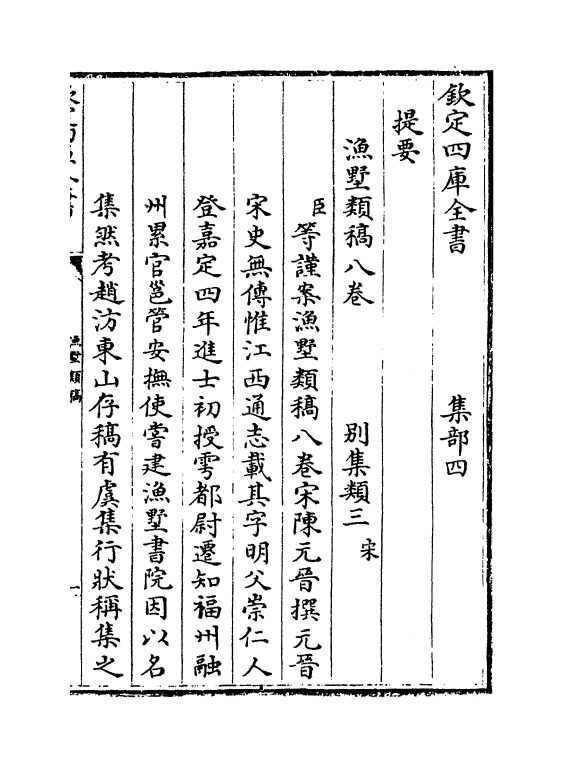 欽定四庫全書　集部四
提要
漁墅類稿八卷　别集類三宋
臣等謹案漁墅類稿八卷宋陳元晉撰元晉
宋史無傳惟江西通志載其字明父崇仁人
登嘉定四年進士初授雩都尉遷知福州融
州累官邕管安撫使嘗建漁墅書院因以名
集然考趙汸東山存稿有虞集行狀稱集之
漁墅類稿
一